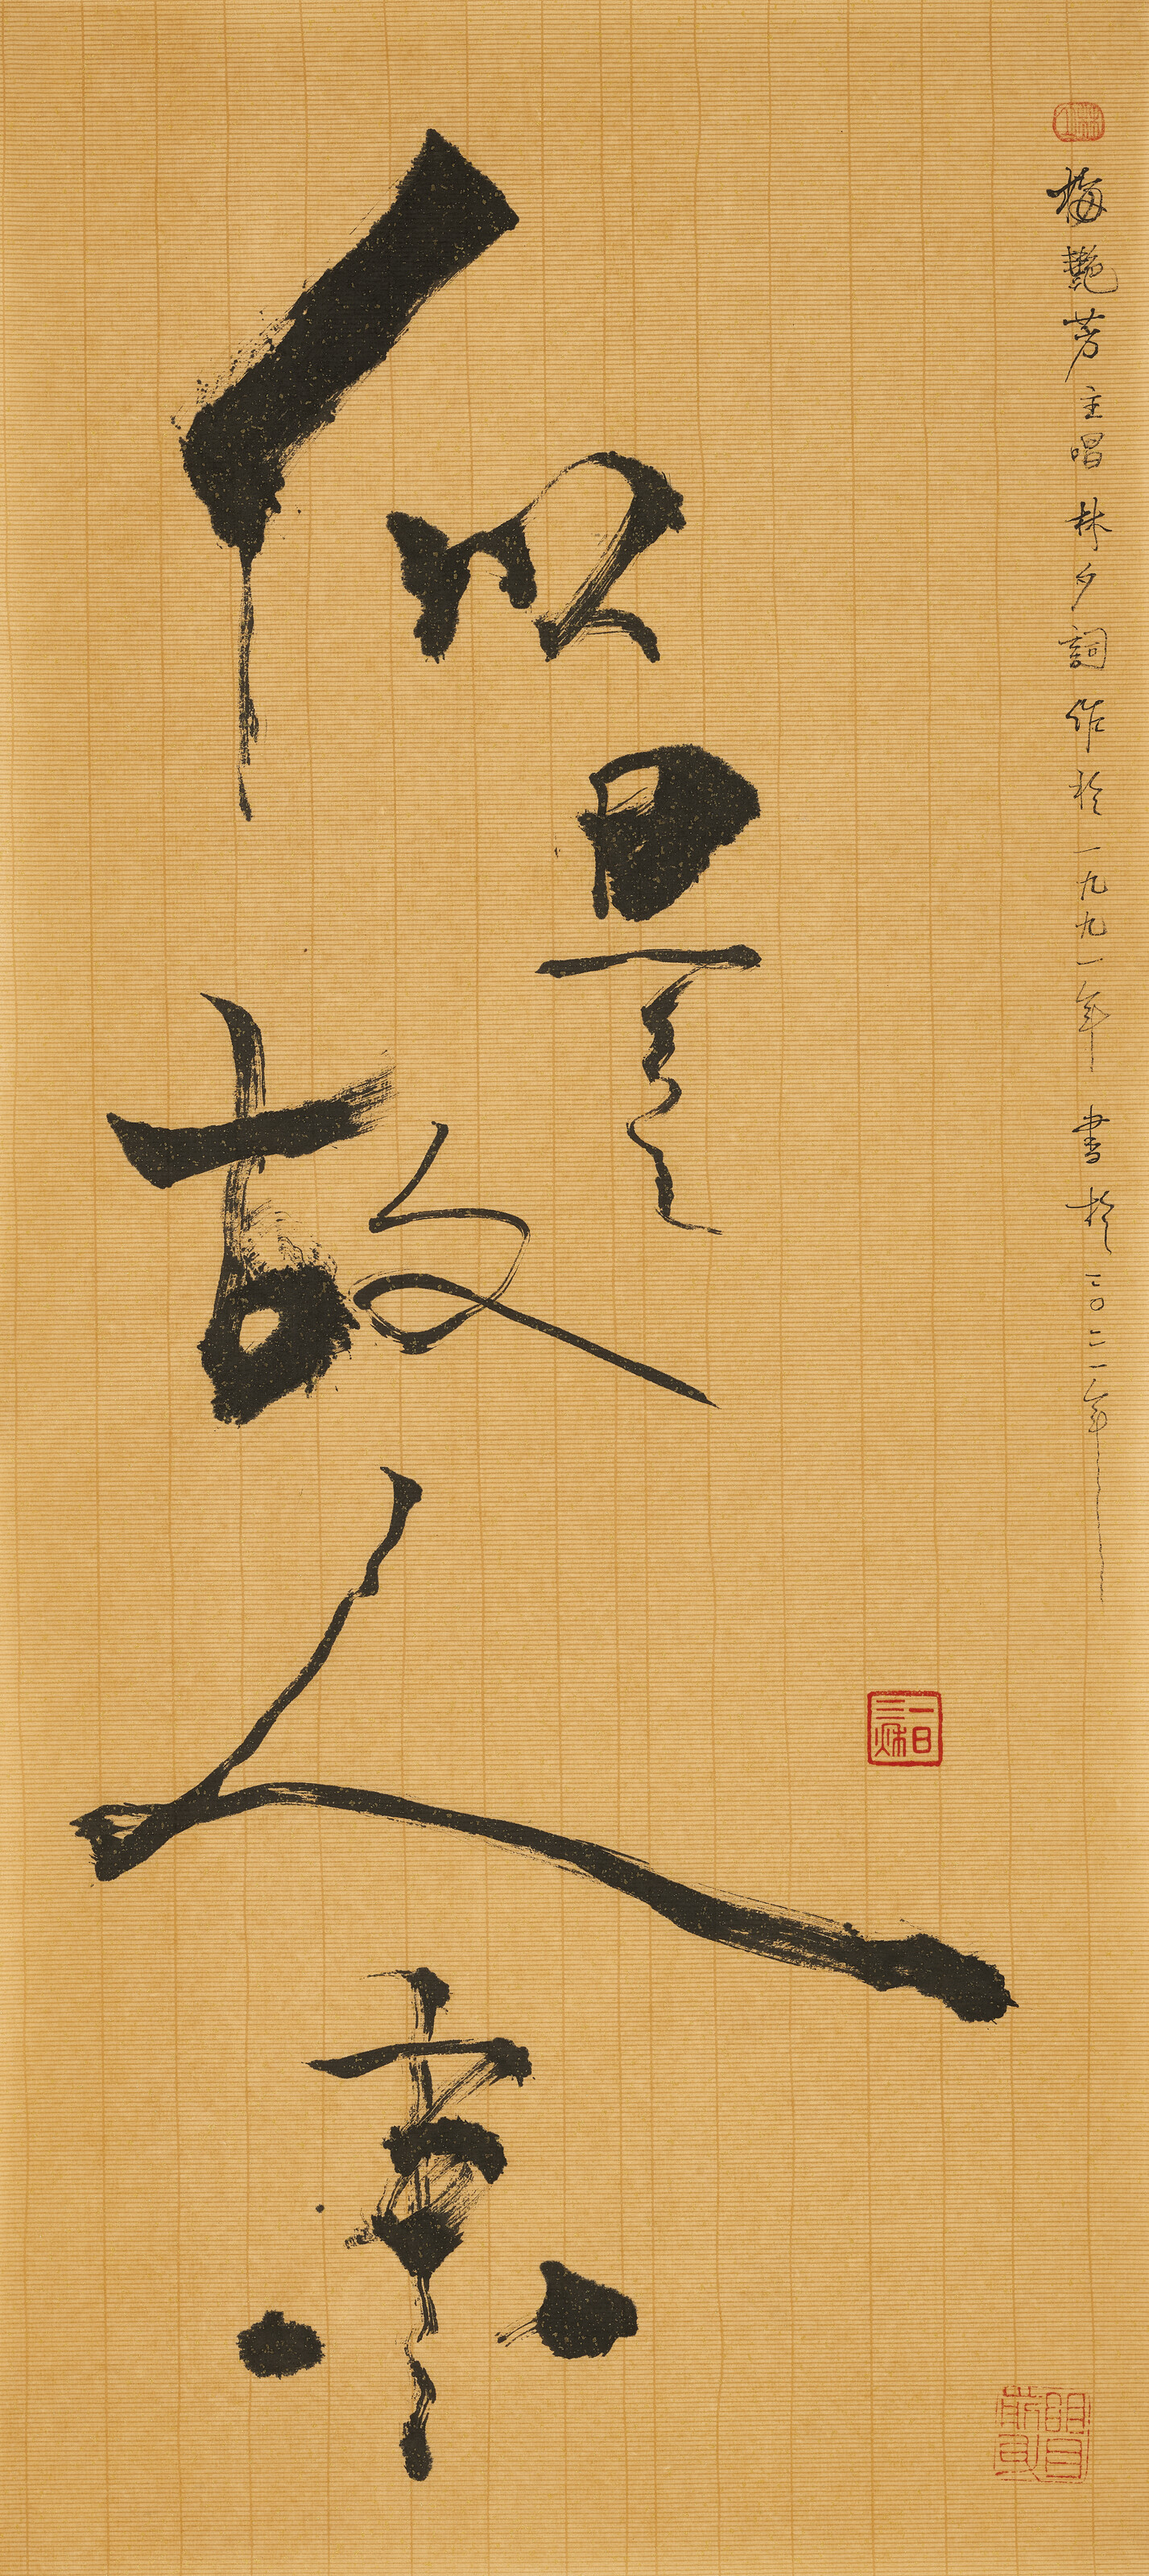 梅艷芳主唱 林夕詞 作於一九九一年 書於二〇二一年
似是故人來
一日
三秋